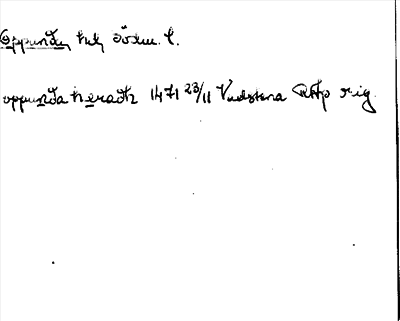 Oppunda, hd, Södm. l.
oppunda hæradh 1471 23/11 Vadstena RAp rig.